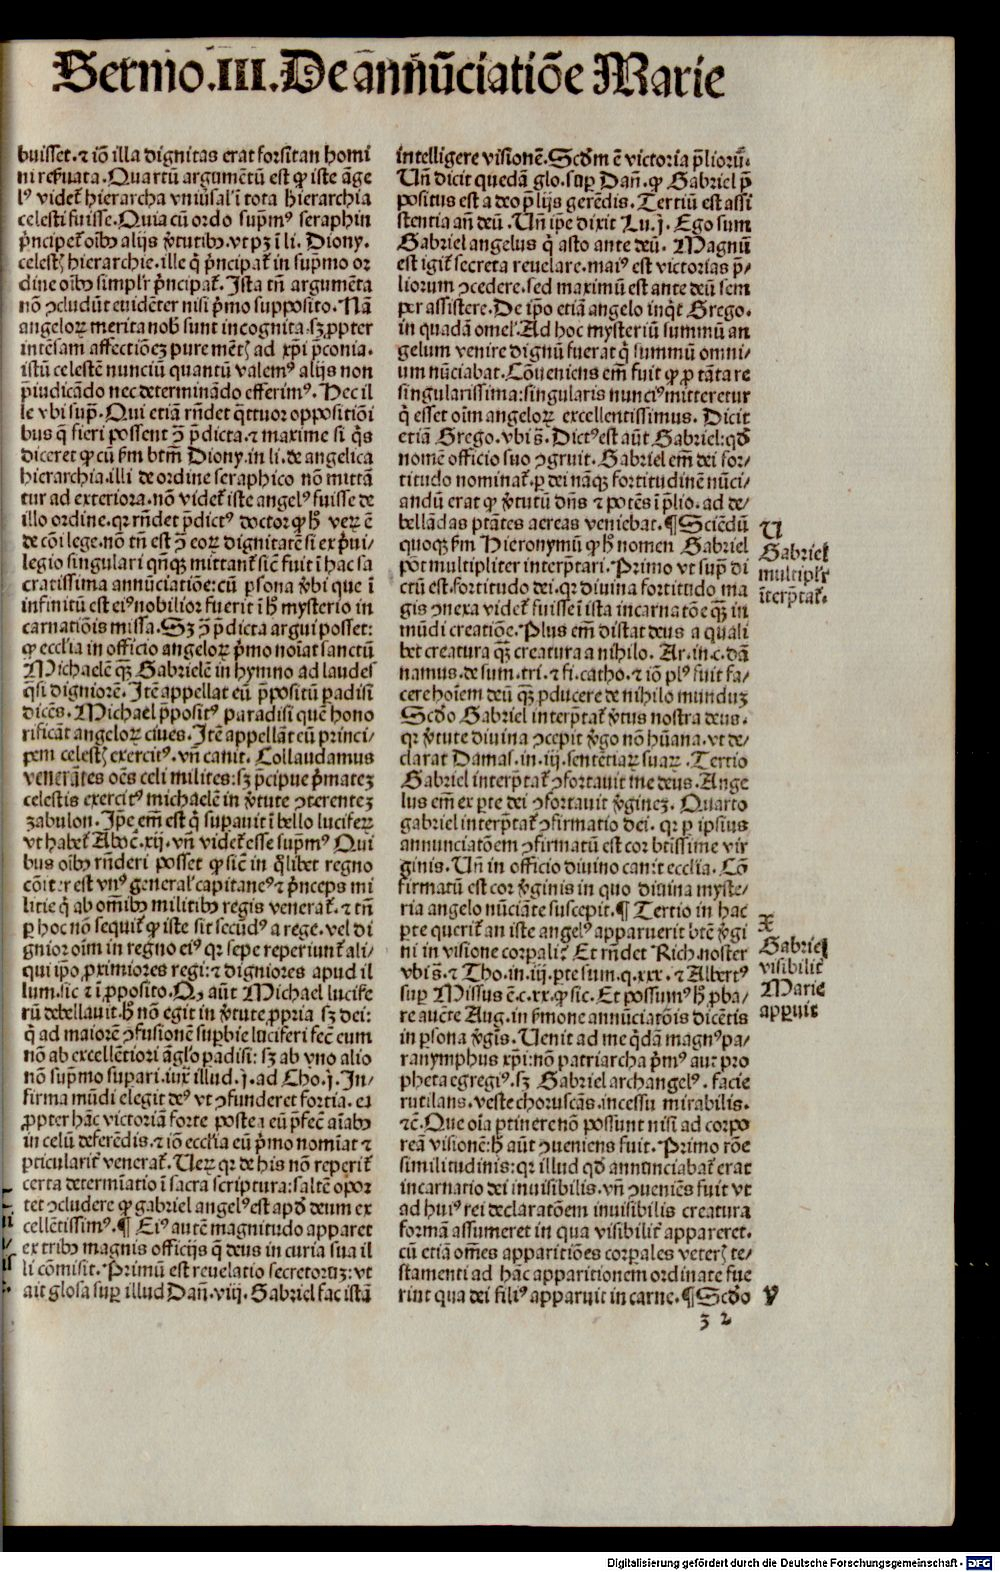 Sermo.III.De an̄nūciatiōe Marie
buisset.⁊ iō illa dignitas erat forsitan homi
ni reẜuata. Quartū argumētū est ꝙ iste āge
lꝰ videt᷑ hierarcha vniũsal'i tota hierarchia
celesti fuisse. Quia cū ordo supͫmꝰ seraphin
pͥncipet᷑ oībꝰ alijs ꝟtutibꝰ.vt pꝫ ī li. Diony.
celestꝭ hierarchie.ille qͥ pͥncipat᷑ in supͫmo or
dine oībꝰ simplr̄ pͥncipat᷑. Ista tn̄ argumēta
nō ꝯcludūt euidēter nisi pͥmo supposito. Nā
angeloꝝ merita nob̄ sunt incognita.sꝫ ꝓpter
intēsam affectiōeꝫ pure mētꝭ ad xp̄i p̄conia.
istū celestē nunciū quantū valemꝰ alijs non
p̄iudicādo nec determinādo efferimꝰ. Hec il
le vbi supͣ. Qui etiā rn̄det qͣttuor oppositiōi
bus q̄ fieri possent ꝯͣ p̄dicta.⁊ maxime si qͥs
diceret ꝙ cū ẜm btm̄ Diony.in li.de angelica
hierarchia.illi de ordine seraphico nō mittā
tur ad exteriora.nō videt᷑ iste angelꝰ fuisse de
illo ordine.qr rn̄det p̄dictꝰ doctor ꝙ hͦ veꝝ ē
de cōi lege.nō tn̄ est ꝯͣ eoꝝ dignitatē si ex pͥui/
legio singulari qn̄qꝫ mittant᷑ sic̄ fuit ī hac sa
cratissima annūciatiōe:cū ꝑsona ꝟbi que ī
infinitū est eiꝰ nobilior fuerit ī hͦ mysterio in
carnatiōis missa. Sꝫ ꝯͣ p̄dicta argui posset:
ꝙ ecclīa in officio angeloꝝ pͥmo noīat sanctū
Michaelē qꝫ̄ Gabrielē in hymno ad laudes
qͣsi digniorē. Itē appellat eū p̄positū padisi
dicēs. Michael p̄positꝰ paradisi quē hono
rificāt angeloꝝ ciues. Itē appellāt eū princi/
pem celestꝭ exercitꝰ.vn̄ canit. Collaudamus
venerātes oēs celi milites:sꝫ p̄cipue pͥmateꝫ
celestis exercitꝰ michaelē in ꝟtute ꝯterenteꝫ
zabulon. Ip̄e em̄ est qͥ supauit ī bello luciferꝝ
vt habet᷑ Apoc̄.xij.vn̄ videt᷑ esse supͫmꝰ Qui
bus oībꝰ rn̄deri posset ꝙ sic̄ in qͦlibet regno
cōiter est vnꝰ general' capitaneꝰ ⁊ pͥnceps mi
litie qͥ ab om̄ibꝰ militibꝰ regis venerat᷑.⁊ tn̄
ꝑ hoc nō sequit᷑ ꝙ iste sit secūdꝰ a rege.vel di
gnior oīm in regno eiꝰ qr sepe reperiunt᷑ ali/
qui ip̄o ꝓximiores regi:⁊ digniores apud il
lum.sic ⁊ ī ꝓposito. Qꝫ aūt Michael lucife
rū debellauit.hͦ nō egit in ꝟtute ꝓpria sꝫ dei:
qͥ ad maiorē ꝯfusionē supbie luciferi fec̄ eum
nō ab excellētiori āglo padisi: sꝫ ab vno alio
nō supͫmo supari.iux̄ illud.j.ad Cho.j. In/
firma mūdi elegit deꝰ vt ꝯfunderet fortia. et
ꝓpter hāc victoriā forte postea eū p̄fec̄ aīabꝰ
in celū deferēdis.⁊ iō ecclīa eū pͥmo nomīat ⁊
pticularit᷑ venerat᷑. Ueꝝ qr de his nō reperit᷑
certa determīatio ī sacra scriptura:saltē opor
tet ꝯcludere ꝙ gabriel angelꝰ est apd̄ deum ex
cellētissimꝰ.¶ Eiꝰ autē magnitudo apparet
ex tribꝰ magnis officijs q̄ deus in curia sua il
li cōmisit. Primū est reuelatio secretoruꝫ:vt
ait glosa suꝑ illud Dan̄.viij. Gabriel fac istā
intelligere visionē. Scd̄m ē victoria p̄lioruꝫ.
Un̄ dicit quedā glo.suꝑ Dan̄.ꝙ Gabriel p̄
positus est a deo p̄lijs gerēdis. Tertiū est assi
stentia an̄ deū. Un̄ ip̄e dixit Lu.j. Ego sum
Gabriel angelus qͥ asto ante deū. Magnū
est igit᷑ secreta reuelare.maiꝰ est victorias p̄/
liorum ꝯcedere.sed maximū est ante deū sem
per assistere. De ip̄o etiā angelo inqͥt Grego.
in quadā omel'. Ad hoc mysteriū summū an
gelum venire dignū fuerat qͥ summū omni/
um nūciabat. Cōueniens em̄ fuit ꝙ ꝓ tāta re
singularissima:singularis nunciꝰ mitteretur
qͥ esset oīm angeloꝝ excellentissimus. Dicit
etiā Grego.vbi s̄. Dictꝰ est aūt Gabriel:qd̄
nomē officio suo ꝯgruit. Gabriel em̄ dei for/
titudo nominat᷑.per dei nāqꝫ fortitudinē nūci/
andū erat ꝙ ꝟtutū dn̄s ⁊ potēs ī p̄lio.ad de/
bellādas ptātes aereas veniebat.¶ Sciēdū
quoqꝫ ẜm Hieronymū ꝙ hͦ nomen Gabriel
pōt multipliter interp̄tari. Primo vt supͣ di
ctū est.fortitudo dei.qr diuina fortitudo ma
gis ꝯnexa videt᷑ fuisse ī ista incarnatōe qꝫ̄ in
mūdi creatiōe. Plus em̄ distat deus a quali
bet creatura qꝫ̄ creatura a nihilo. Ar.in.c.dā
namus.de sum.tri.⁊ fi.catho.⁊ iō plꝰ fuit fa/
cere hoīem deū qꝫ̄ ꝓducere de nihilo munduꝫ
Scd̄o Gabriel interp̄tat᷑ ꝟtus nostra deus.
qr ꝟtute diuina ꝯcepit ꝟgo nō hūana.vt de/
clarat Damas.in.iij.sentētiaꝝ suaꝝ. Tertio
Gabriel interp̄tat᷑ ꝯfortauit me deus. Ange
lus em̄ ex pte dei ꝯfortauit ꝟgineꝫ. Quarto
gabriel interp̄tat᷑ ꝯfirmatio dei.qr ꝑ ipsius
annunciatōem ꝯfirmatū est cor btīssime vir
ginis. Un̄ in officio diuino canit ecclīa. Cō
firmatū est cor ꝟginis in quo diuina myste/
ria angelo nūciāte suscepit.¶ Tertio in hac
pte querit᷑ an iste angelꝰ apparuerit btē ꝟgi
ni in visione corpali? Et rn̄det Rich.noster
vbi s̄.⁊ Tho.in.iij.pte sum.q.xxx.⁊ Albertꝰ
suꝑ Missus ē.c.xx.ꝙ sic. Et possumꝰ hͦ ꝓba/
re auctē Aug.in ẜmone annūciatōis dicētis
in ꝑsona ꝟgīs. Uenit ad me qͥdā magnꝰ pa/
ranymphus xp̄i:nō patriarcha pͥmꝰ aut pro
pheta egregiꝰ.sꝫ Gabriel archangelꝰ.facie
rutilans.veste choruscās.incessu mirabilis.
⁊c̄. Que oīa ptinere nō possunt nisi ad corpo
reā visionē:hͦ aūt ꝯueniens fuit. Primo rōe
similitudinis:qr illud qd̄ annunciabat᷑ erat
incarnatio dei inuisibilis.vn̄ ꝯueniēs fuit vt
ad huiꝰ rei declaratōem inuisibilis creatura
formā assumeret in qua visibilit᷑ appareret.
cū etiā om̄es apparitiōes corpales veterꝭ te/
stamenti ad hāc apparitionem ordinate fue
rint qua dei filiꝰ apparuit in carne.¶ Scd̄o
U
Gabriel
multiplr̄
īterp̄tat᷑.
X
Gabriel
visibilit᷑
Marie
apparuit
Y
z 2
Digitalisierung gefördert durch die Deutsche Forschungsgemeinschaft - DFG